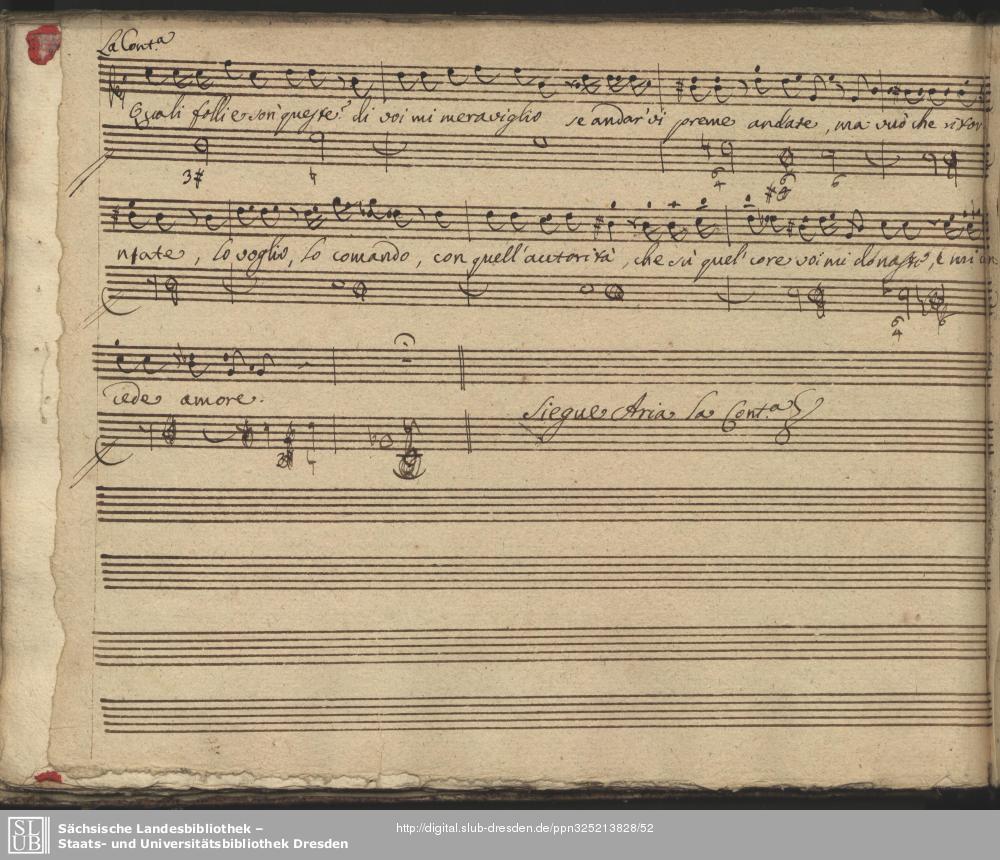 La Cont.a
Quali follie son queste? di voi mi meraviglio se andar vi preme andate, ma vuò che ritor
3# 4 6 4 #6 6
niate, lo voglio, lo comando, con quell'autorità, che sù quel' core voi mi donaste, e mi con
6 4 6
cede amore.
Siegue Aria la Cont.a
3 4
SLUB
Sächsische Landesbibliothek –
Staats- und Universitätsbibliothek Dresden
http://digital.slub-dresden.de/ppn325213828/52